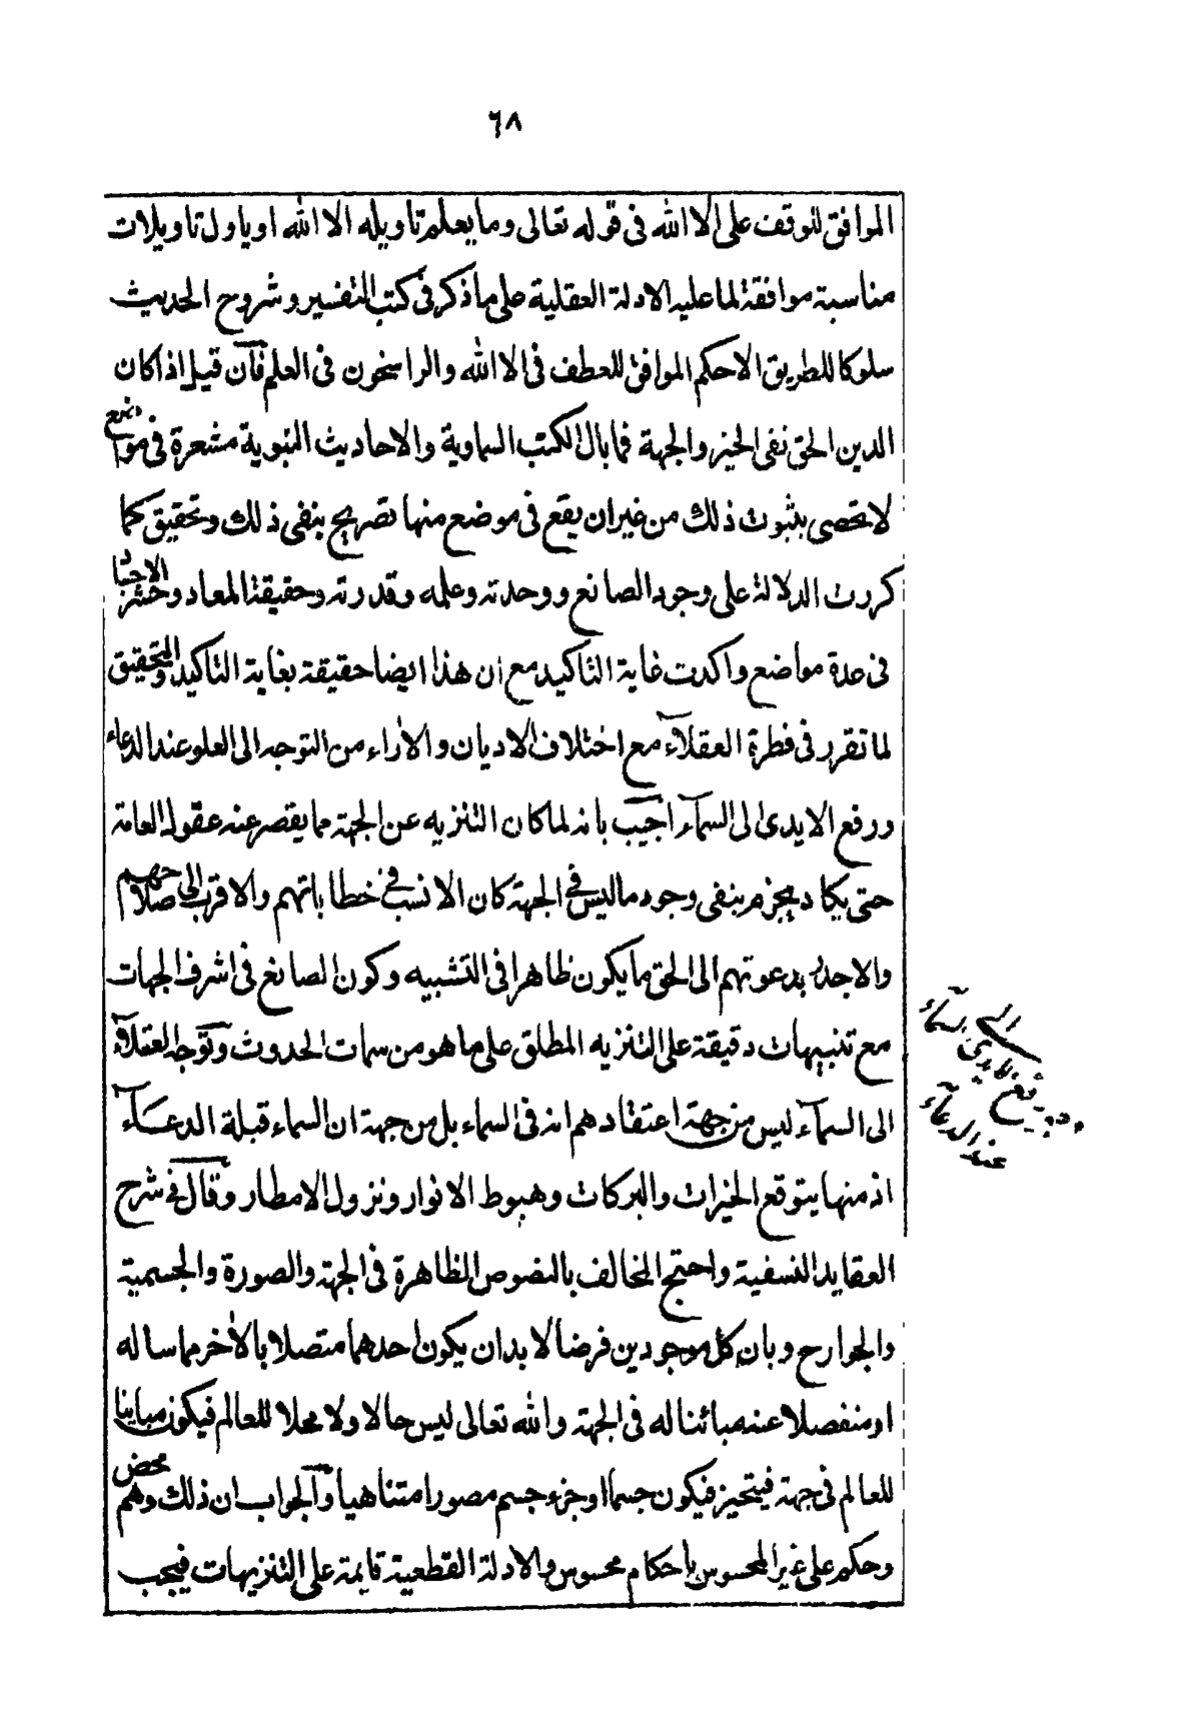 ٦٨
الموافق للوقف على الا الله فى قوله تعالى وما يعلم تاويله الا الله او ياول تاويلات
مناسبة موافقة لما عليه الادلة العقلية على ما ذكر فى كتب التفسير وشروح الحديث
سلوكا للطريق الاحكم الموافق للعطف فى الا الله والراسخون فى العلم فان قيل اذا كان
الدين الحق نفى الحيز والجهة فما بال الكتب السماوية والاحاديث النبوية مشعرة فى مواضع
لا تحصى بثبوت ذلك من غير ان يقع فى موضع منها تصريح بنفى ذلك وتحقيق كما
كررت الدلالة على وجود الصانع ووحدته وعلمه وقدرته وحقيقة المعاد وحشر الاجساد
فى عدة مواضع واكدت غاية التاكيد مع ان هذا ايضا حقيقة بغاية التاكيد والتحقيق
لما تقرر فى فطرة العقلاء مع اختلاف الاديان والآراء من التوجه الى العلو عند الدعاء
ورفع الايدى الى السماء اجيب بانه لما كان التنزيه عن الجهة مما يقصر عنه عقول العامة
حتى يكاد يجزم بنفى وجود ما ليس فى الجهة كان الانسب فى خطاباتهم والاقرب الى صلاحهم
والاجدر بدعوتهم الى الحق ما يكون ظاهرا فى التشبيه وكون الصانع فى اشرف الجهات
مع تنبيهات دقيقة على التنزيه المطلق على ما هو من سمات الحدوث وتوجه العقلاء
الى السماء ليس من جهة اعتقادهم انه فى السماء بل من جهة ان السماء قبلة الدعاء
اذ منها يتوقع الخيرات والبركات وهبوط الانوار ونزول الامطار وقال فى شرح
العقايد النسفية واحتج المخالف بالنصوص الظاهرة فى الجهة والصورة والجسمية
والجوارح وبان كل موجودين فرضا لا بد ان يكون احدهما متصلا بالآخر مماسا له
او منفصلا عنه مبائنا له فى الجهة والله تعالى ليس حالا ولا محلا للعالم فيكون مباينا
للعالم فى جهة فيتحيز فيكون جسما او جزء جسم مصورا متناهيا والجواب ان ذلك وهم محض
وحكم على غير المحسوس باحكام محسوس والادلة القطعية قايمة على التنزيهات فيجب
ورفع الايدى الى السماء
عند الدعاء